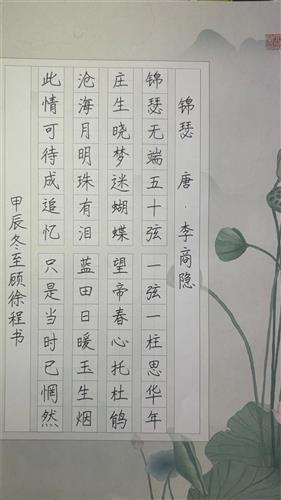 锦瑟 唐·李商隐
锦瑟无端五十弦 一弦一柱思华年
庄生晓梦迷蝴蝶 望帝春心托杜鹃
沧海月明珠有泪 蓝田日暖玉生烟
此情可待成追忆 只是当时已惘然
甲辰冬至顾徐程书